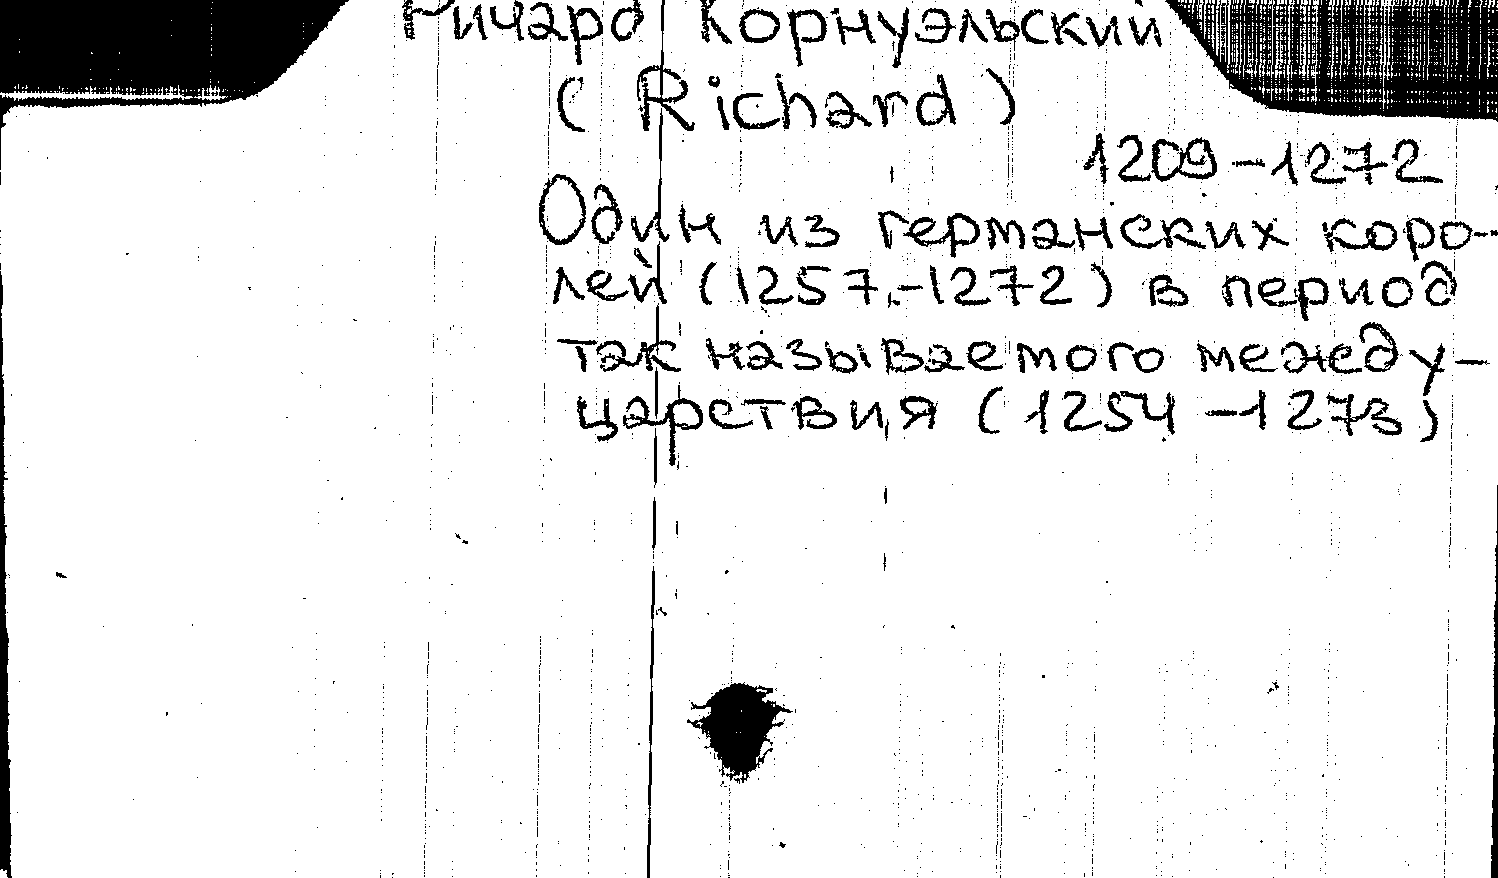 Ричард Корнуэльский
(Richard)
1209-1272
Один из германских коро-
лей (1257-1272) в период
так называемого между-
царствия (1254-1273)